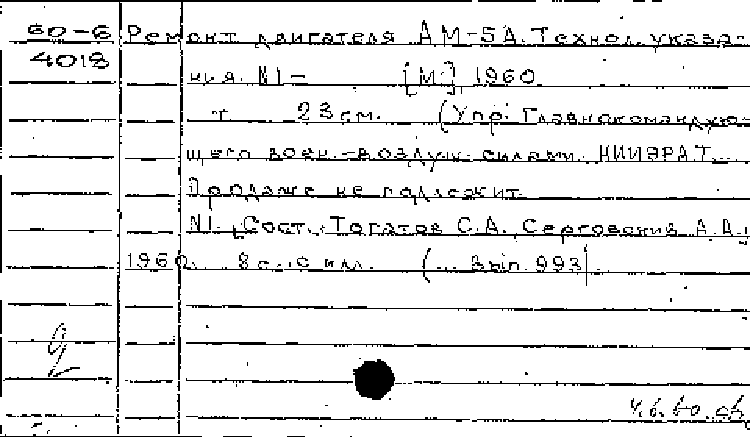 60-6 Ремонт двигателя АМ-5А. Технол. указа-
4018 ния. N1- [М.] 1960
т 23 см. (Упр. Главнокомандую-
щего воен.-воздуш. силами. НИИЭРАТ
Продаже не подлежит
N1. [Сост.: Тогатов С.А., Серговский А.А.]
1960. 8 с. с илл. (... Вып. 993)